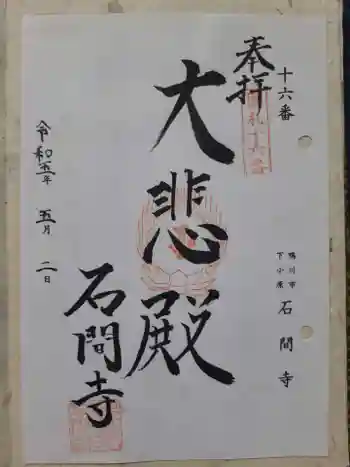 十六番
鴨川市
下小原
石間寺
奉拝
大悲殿
石間寺
令和五年 五月 二日